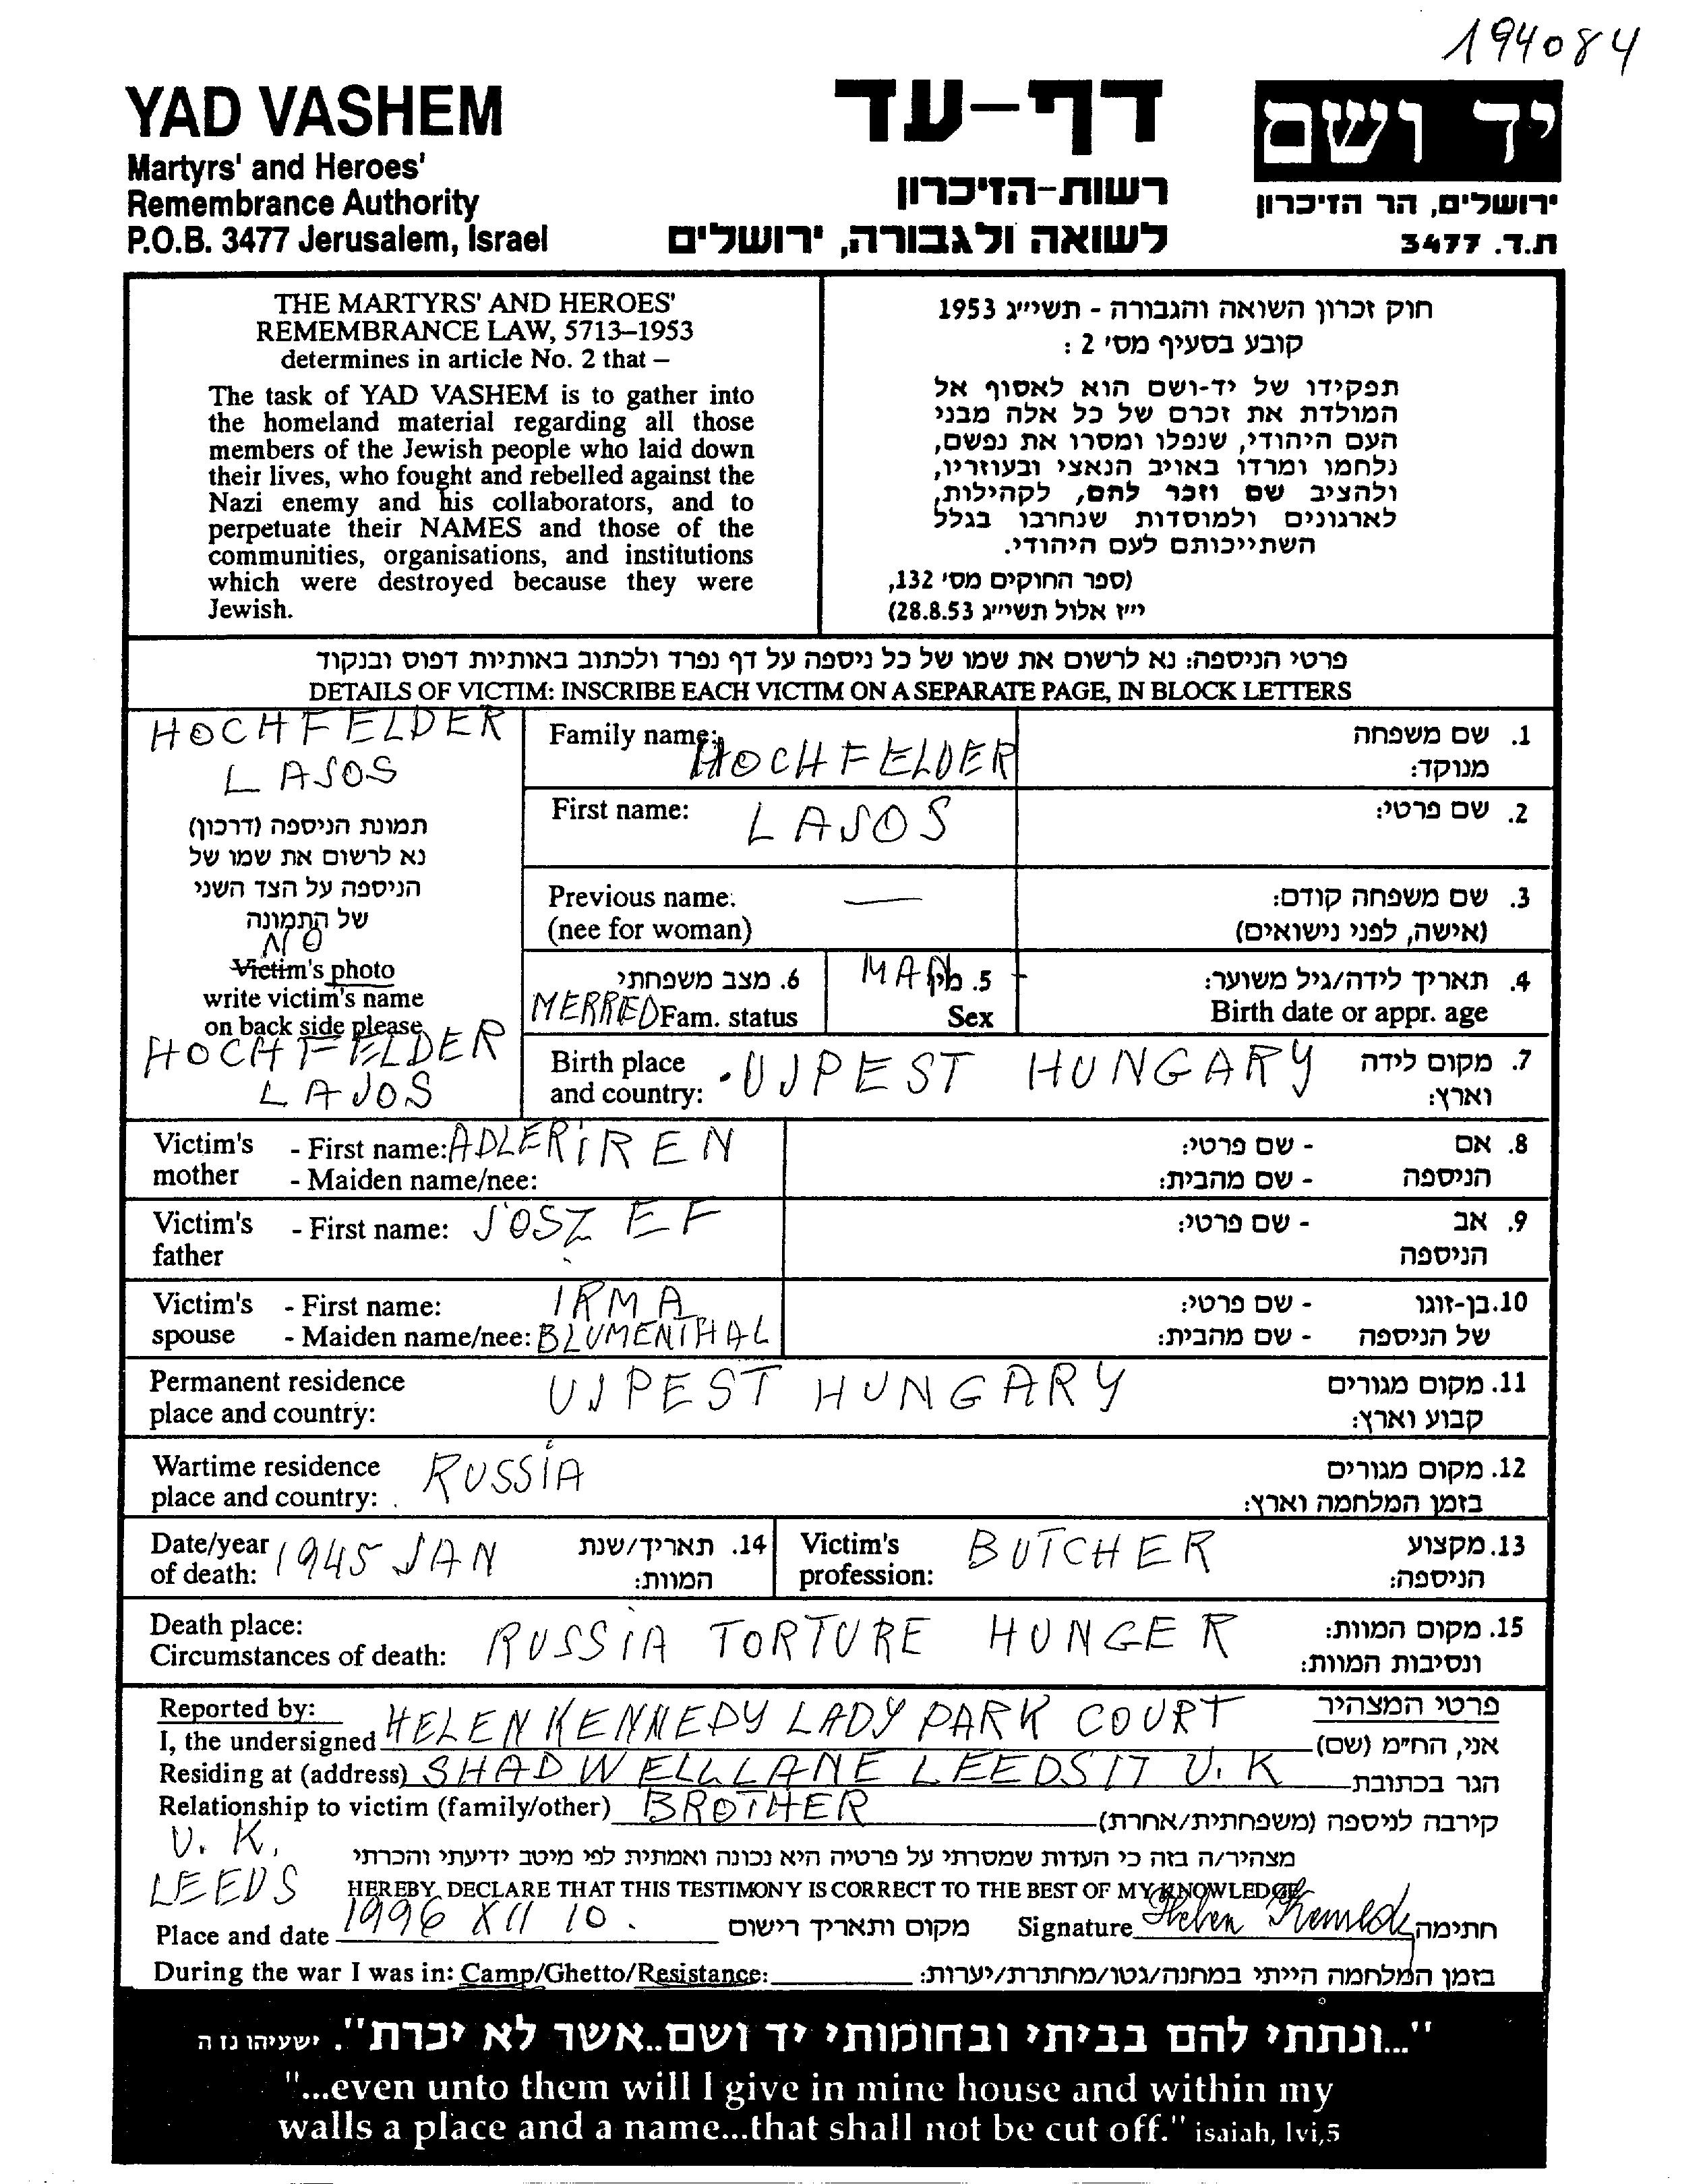 194084
YAD VASHEM
Martyrs' and Heroes'
Remembrance Authority
P.O.B. 3477 Jerusalem, Israel
דף-עד
רשות-הזיכרון
לשואה ולגבורה, ירושלים
יד ושם
ירושלים, הר הזיכרון
ת.ד. 3477
THE MARTYRS' AND HEROES'
REMEMBRANCE LAW, 5713–1953
determines in article No. 2 that –
The task of YAD VASHEM is to gather into
the homeland material regarding all those
members of the Jewish people who laid down
their lives, who fought and rebelled against the
Nazi enemy and his collaborators, and to
perpetuate their NAMES and those of the
communities, organisations, and institutions
which were destroyed because they were
Jewish.
חוק זכרון השואה והגבורה - תשי״ג 1953
קובע בסעיף מס׳ 2 :
תפקידו של יד-ושם הוא לאסוף אל
המולדת את זכרם של כל אלה מבני
העם היהודי, שנפלו ומסרו את נפשם,
נלחמו ומרדו באויב הנאצי ובעוזריו,
ולהציב שם וזכר להם, לקהילות,
לארגונים ולמוסדות שנחרבו בגלל
השתייכותם לעם היהודי.
(ספר החוקים מס׳ 132,
י״ז אלול תשי״ג 28.8.53)
פרטי הניספה: נא לרשום את שמו של כל ניספה על דף נפרד ולכתוב באותיות דפוס ובנקוד
DETAILS OF VICTIM: INSCRIBE EACH VICTIM ON A SEPARATE PAGE, IN BLOCK LETTERS
HOCHFELDER
LAJOS
תמונת הניספה (דרכון)
נא לרשום את שמו של
הניספה על הצד השני
של התמונה
NO
Victim's photo
write victim's name
on back side please
HOCHFELDER
LAJOS
Family name: HOCHFELDER 1. שם משפחה
מנוקד:
First name: LAJOS 2. שם פרטי:
Previous name: — 3. שם משפחה קודם:
(nee for woman) (אישה, לפני נישואים)
6. מצב משפחתי 5. מין 4. תאריך לידה/גיל משוער:
MERRED Fam. status Sex Birth date or appr. age
Birth place UJPEST HUNGARY 7. מקום לידה
and country: וארץ:
Victim's - First name: ADLER iREN - שם פרטי: 8. אם
mother - Maiden name/nee: - שם מהבית: הניספה
Victim's - First name: JOSZEF - שם פרטי: 9. אב
father הניספה
Victim's - First name: IRMA - שם פרטי: 10. בן-זוגו
spouse - Maiden name/nee: BLUMENTHAL - שם מהבית: של הניספה
Permanent residence UJPEST HUNGARY 11. מקום מגורים
place and country: קבוע וארץ:
Wartime residence RUSSiA 12. מקום מגורים
place and country: בזמן המלחמה וארץ:
Date/year 1945 JAN 14. תאריך/שנת Victim's BUTCHER 13. מקצוע
of death: המוות: profession: הניספה:
Death place: RUSSiA TORTURE HUNGER 15. מקום המוות:
Circumstances of death: ונסיבות המוות:
Reported by: פרטי המצהיר
I, the undersigned HELEN KENNEDY LADY PARK COURT אני, הח״מ (שם)
Residing at (address) SHADWELL LANE LEEDS 17 U.K הגר בכתובת
Relationship to victim (family/other) BROTHER קירבה לניספה (משפחתית/אחרת)
U.K.
LEEDS
מצהיר/ה בזה כי העדות שמסרתי על פרטיה היא נכונה ואמתית לפי מיטב ידיעתי והכרתי
HEREBY DECLARE THAT THIS TESTIMONY IS CORRECT TO THE BEST OF MY KNOWLEDGE
Place and date 1996 XII 10. מקום ותאריך רישום Signature Helen Kennedy חתימה
During the war I was in: Camp/Ghetto/Resistance: בזמן המלחמה הייתי במחנה/גטו/מחתרת/יערות:
"...ונתתי להם בביתי ובחומותי יד ושם..אשר לא יכרת". ישעיהו נז ה
"...even unto them will I give in mine house and within my
walls a place and a name...that shall not be cut off." isaiah, lvi,5